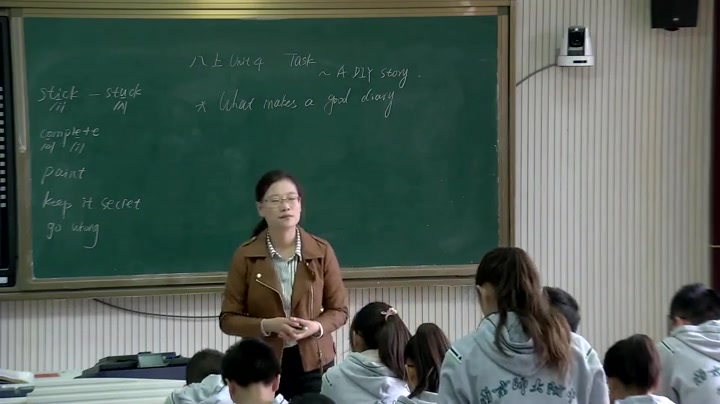 八上 Unit 4 Task
~ A DIY story.
* What makes a good diary
stick - stuck
/ɪ/ /ʌ/
complete
paint
keep it secret
go wrong